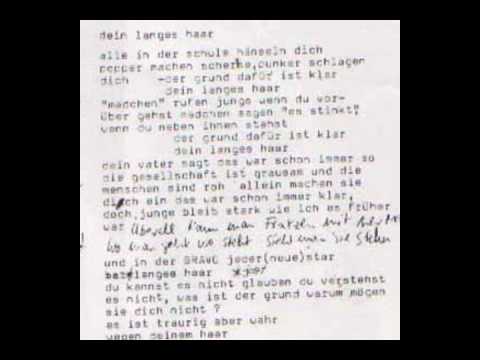 dein langes haar
alle in der schule hänseln dich
popper machen scherke,punker schlagen
dich -der grund dafür ist klar
dein langes haar
"mädchen" rufen junge wenn du vor-
über gehst mädchen sagen "es stinkt",
wenn du neben ihnen stehst
der grund dafür ist klar
dein langes haar
dein vater sagt das war schon immer so
die gesellschaft ist grausam und die
menschen sind roh allein machen sie
dich ein das war schon immer klar,
doch,junge bleib stark wie ich es früher
war Überall kann man Fratzen mit
wo man geht wo steht sieht man sie stehen
und in der BRAVO jeder(neue)star
langes haar
du kannst es nicht glauben du verstehst
es nicht, was ist der grund warum mögen
sie dich nicht ?
es ist traurig aber wahr
wegen deinem haar